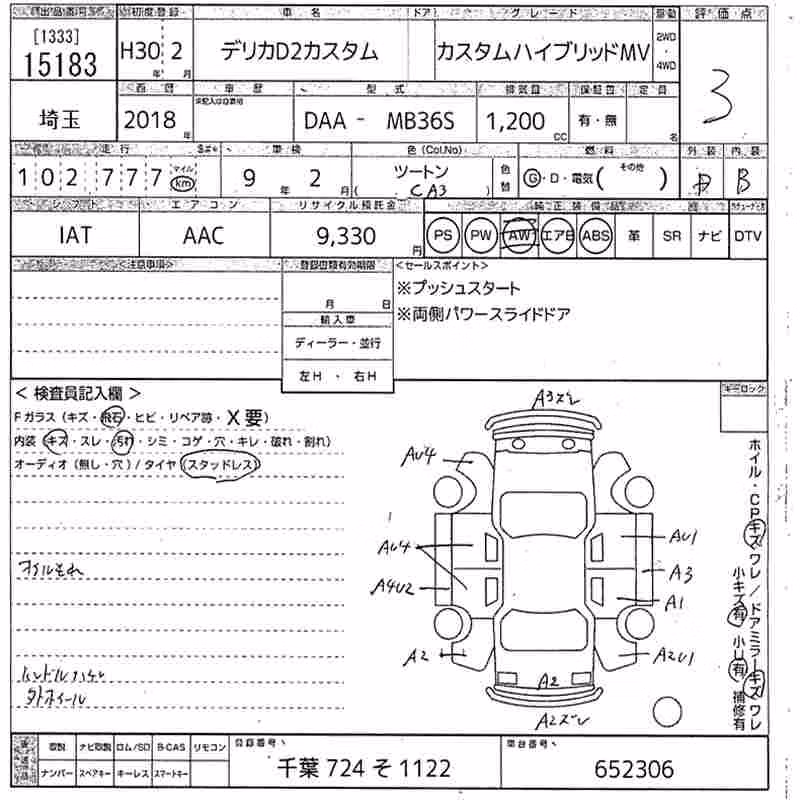 出品番号 初度登録 車名 (ドア) グレード 駆動 評価点
[1333]
15183 H30 2 デリカD2カスタム カスタムハイブリッドMV 2WD ・ 4WD 3
年 月
西暦 車歴 型式 排気量 保証書 定員
※記入ハ自家用
埼玉 2018 年 DAA - MB36S 1,200 CC 有・無 名
走行 車検 色(Col.No) 燃料 外装 内装
102777 マイル km 9 年 2 月 ツートン CA3 色替 G・D・電気( その他 ) B
シフト エアコン リサイクル預託金 純正装備品
IAT AAC 9,330 円 PS PW AW エアB ABS 革 SR ナビ DTV
<注意事項> 登録書類有効期限 <セールスポイント>
月 日 ※プッシュスタート
輸入車 ※両側パワースライドドア
ディーラー・並行
左H ・ 右H
キーロック
< 検査員記入欄 >
Fガラス (キズ・飛石・ヒビ・リペア跡・X要)
内装 (キズ・スレ・汚れ・シミ・コゲ・穴・キレ・破れ・割れ)
オーディオ (無し・穴) / タイヤ (スタッドレス)
オイルもれ
ハンドルハゲ
外ホイール
A3ズレ
AU4
AU4 AU1
A4U2 A3
A1
A2 A2U1
A2
A2ズレ
ホイル・CPキズワレ/ドアミラーキズワレ
小キズ有 小U有 補修有
取説 ナビ取説 ロム/SD B-CAS リモコン 登録番号 車台番号
ナンバー スペアキー キーレス スマートキー 千葉 724 そ 1122 652306